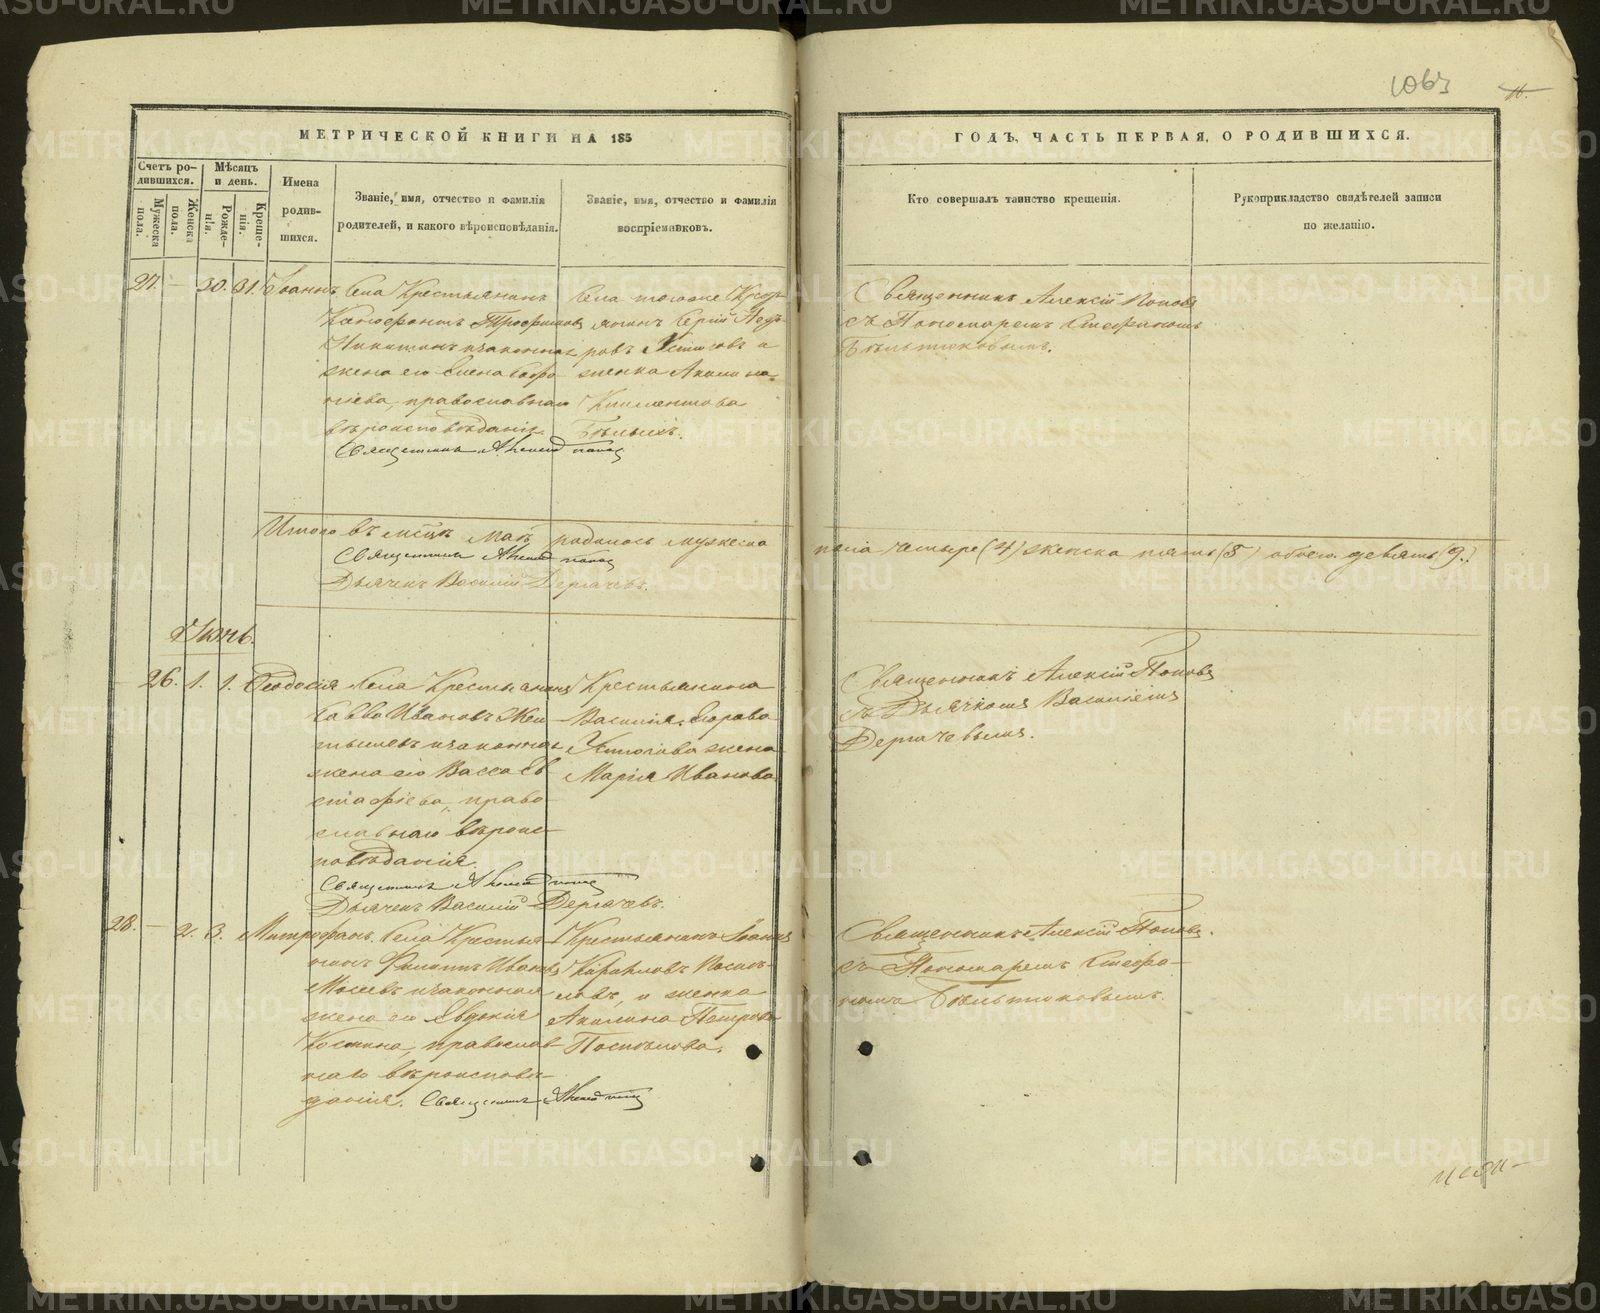 1063
11.
МЕТРИЧЕСКОЙ КНИГИ НА 185
ГОДЪ, ЧАСТЬ ПЕРВАЯ, О РОДИВШИХСЯ.
Счетъ ро-
дившихся.
Мѣсяцъ
и день.
Мужеска
пола.
Женска
пола.
Рожде-
нія.
Креще-
нія.
Имена
родив-
шихся.
Званіе, имя, отчество и фамилія
родителей, и какого вѣроисповѣданія.
Званіе, имя, отчество и фамилія
воспріемниковъ.
Кто совершалъ таинство крещенія.
Рукоприкладство свидѣтелей записи
по желанію.
27. — 30. 31. Іоаннъ
Села Крестьянинъ
Ксенофонтъ Трофимовъ
Никитинъ и законная
жена его Елена
православнаго
вѣроисповѣданія.
Священникъ Алексій Попов
Села тогоже Кресть-
янинъ Сергій Ѳедо-
ровъ Устюговъ и
женка Акилина
Климентова
Бѣлыхъ.
Священникъ Алексій Поповъ
съ Пономаремъ Стефаномъ
Бѣльтюковымъ.
Итого въ мсцѣ Маѣ родилось мужеска
пола четыре (4) женска пять (5) обоего девять (9).
Священникъ Алексій Попов
Дьячекъ Василій Дергачевъ.
Іюнь.
— 26. 1. 1. Ѳеодосія
Села Крестьянинъ
Савва Ивановъ
и законная
жена его Васса Ев-
стафіева, право-
славнаго вѣроис-
повѣданія.
Священникъ Алексій Попов
Дьячекъ Василій Дергачевъ.
Крестьянина
Василія Егорова
Устюгова жена
Марія Иванова
Священникъ Алексій Поповъ
съ Дьячкомъ Василіемъ
Дергачевымъ.
28. — 2. 3. Митрофанъ.
Села Крестья-
нинъ Филиппъ Ивановъ
Мосеевъ и законная
жена его Евдокія
Костина, православ-
наго вѣроисповѣ-
данія. Священникъ Алексій Попов
Крестьянинъ Іоаннъ
Кирилловъ Поспѣ-
ловъ, и женка
Акилина Петрова
Поспѣлова.
Священникъ Алексій Поповъ.
съ Пономаремъ Стефа-
номъ Бѣльтюковымъ.
METRIKI.GASO-URAL.RU